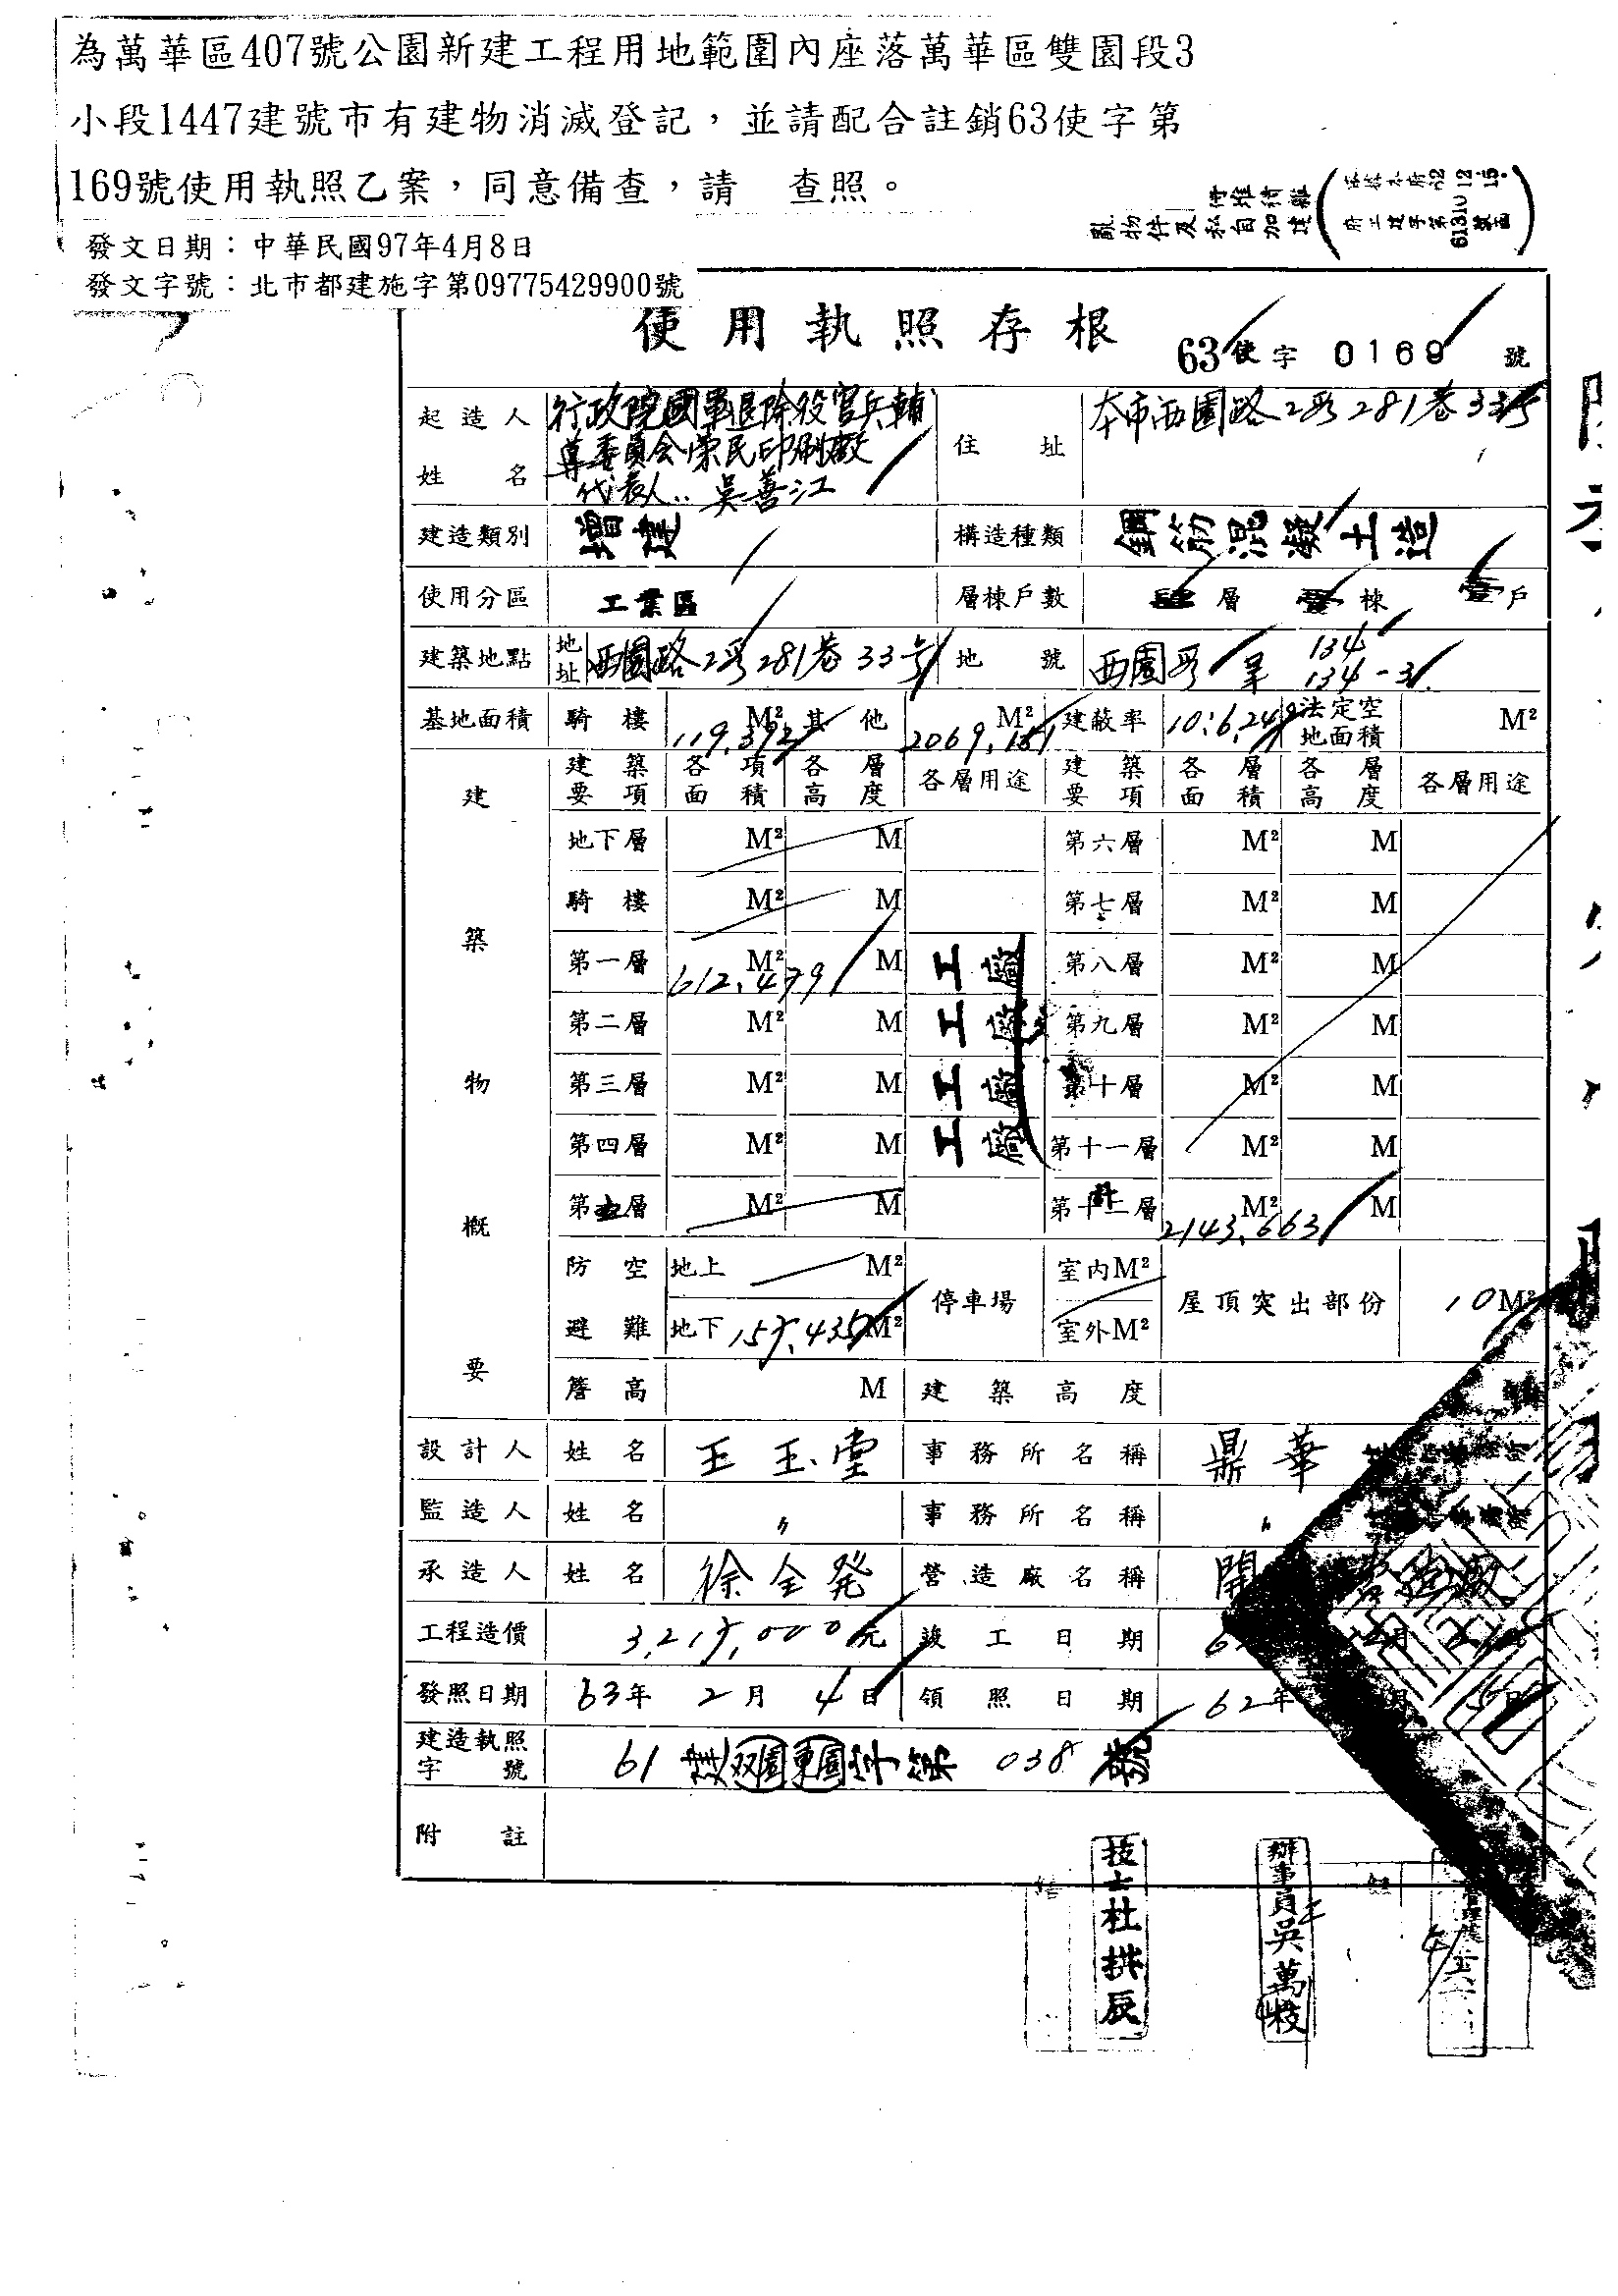 為萬華區407號公園新建工程用地範圍內座落萬華區雙園段3
小段1447建號市有建物消滅登記，並請配合註銷63使字第
169號使用執照乙案，同意備查，請　查照。
發文日期：中華民國97年4月8日
發文字號：北市都建施字第09775429900號
使用執照存根
63使字 0169 號
起造人姓名 行政院國軍退除役官兵輔 住址 本市西園路2段281巷33号
導委員会榮民印刷廠
代表人：吳善江
建造類別 增建 構造種類 鋼筋混凝土造
使用分區 工業區 層棟戶數 肆層 壹棟 壹戶
建築地點 地址 西園路2段281巷33号 地號 西園段 134
134-3
基地面積 騎樓 119.392 M² 其他 2069.151 M² 建蔽率 法定空地面積 M²
建築物概要
建築要項 各項面積 各層高度 各層用途 建築要項 各層面積 各層高度 各層用途
地下層 M² M 第六層 M² M
騎樓 M² M 第七層 M² M
第一層 612.479 M² M 工廠 第八層 M² M
第二層 M² M 工廠 第九層 M² M
第三層 M² M 工廠 第十層 M² M
第四層 M² M 工廠 第十一層 M² M
第五層 M² M 第十二層 計 2143.663 M² M
防空避難 地上 M² 停車場 室內M² 屋頂突出部份 10M²
地下 M² 室外M²
簷高 M 建築高度
設計人 姓名 王玉堂 事務所名稱 鼎華
監造人 姓名 〃 事務所名稱 〃
承造人 姓名 徐全發 營造廠名稱 開 營造廠
工程造價 元 竣工日期
發照日期 63年2月4日 領照日期 62年 月 5日
建造執照字號 61建(双園)(東園)字第038號
附註
技士杜拱辰
辦事員吳萬枝